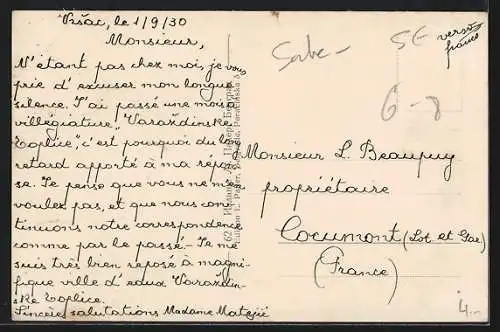 Vršac, le 1/9/30
Monsieur,
N'étant pas chez moi, je vous
prie d'excuser mon longue
silence. J'ai passé une mois a
villégiature, "Varaždinske
Toplice", c'est pourquoi du long
retard apporté à ma répon-
se. Je pense que vous ne m'en
voulez pas, et que nous con-
tinuons notre correspondence
comme par le passé. - Je me
suis très bien reposé à magni-
fique ville d'eaux Varaždin-
ske Toplice.
Sincère salutations Madame
Serbe -
SE verso
franco
6-8
Monsieur L. Beaupuy
propriétaire
Cocumont (Lot. et Gar)
(France)
4.-